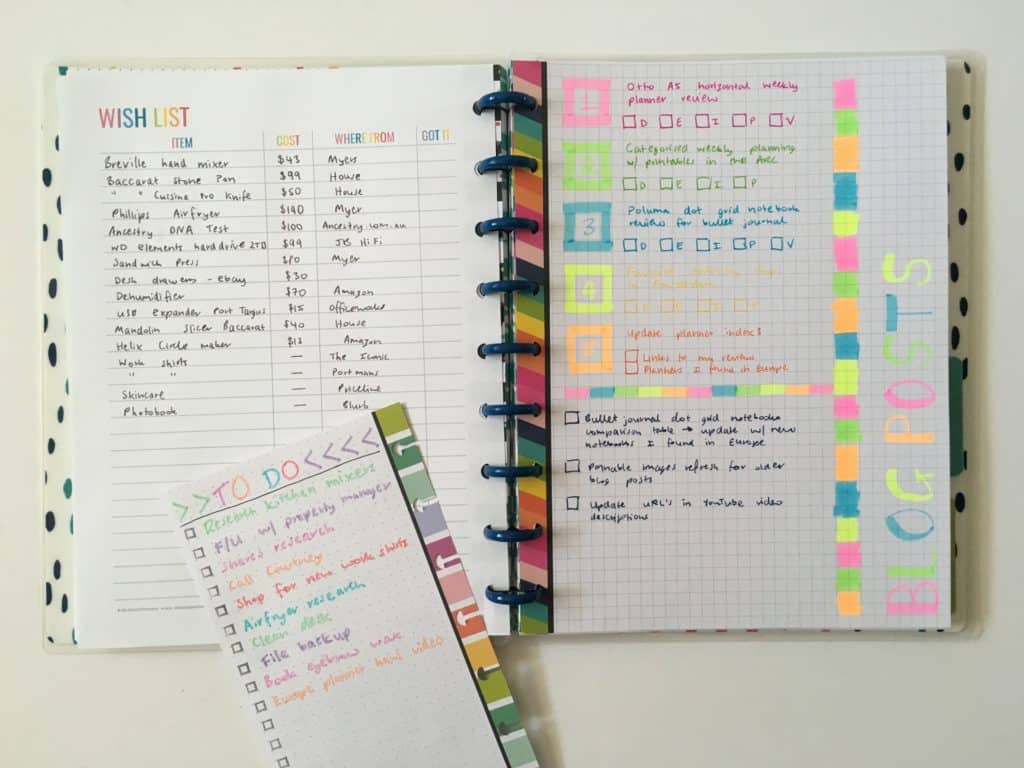 WISH LIST
ITEM COST WHERE FROM GOT IT
Breville hand mixer $43 Myers
Baccarat Stone Pan $99 House
" " Cuisine Pro Knife $50 House
Phillips Airfryer $190 Myer
Ancestry DNA Test $100 Ancestry.com.au
WD elements harddrive 2TB $99 JB HiFi
Sandwich Press Myer
Desk drawers - ebay $30
Dehumidifier $70 Amazon
USB expander Port Targus $15 Officeworks
Mandolin Slicer Baccarat $40 House
Helix Circle maker $13 Amazon
Work shirts — The Iconic
" " — Portmans
Skincare — Priceline
Photobook — Blurb
>>TO DO<<<<<
Research kitchen mixers
F/U w/ property manager
Shares research
Call Courtney
Shop for new work shirts
Airfryer research
Clean desk
File backup
Book eyebrow wax
Europe planner haul video
1 Otto A5 horizontal weekly
planner review
D E I P V
Categorised weekly planning
w/ printables in the ARC
D E I P
3 Paluma dot grid notebook
review for bullet journal
D E I P V
4
E I P
5 Update planner indexs
Links to my reviews
Planners I found in Europe
Bullet journal dot grid notebooks
comparison table → update w/ new
notebooks I found in Europe
Pinnable images refresh for older
blog posts
Update URL's in YouTube video
descriptions
BLOG POSTS